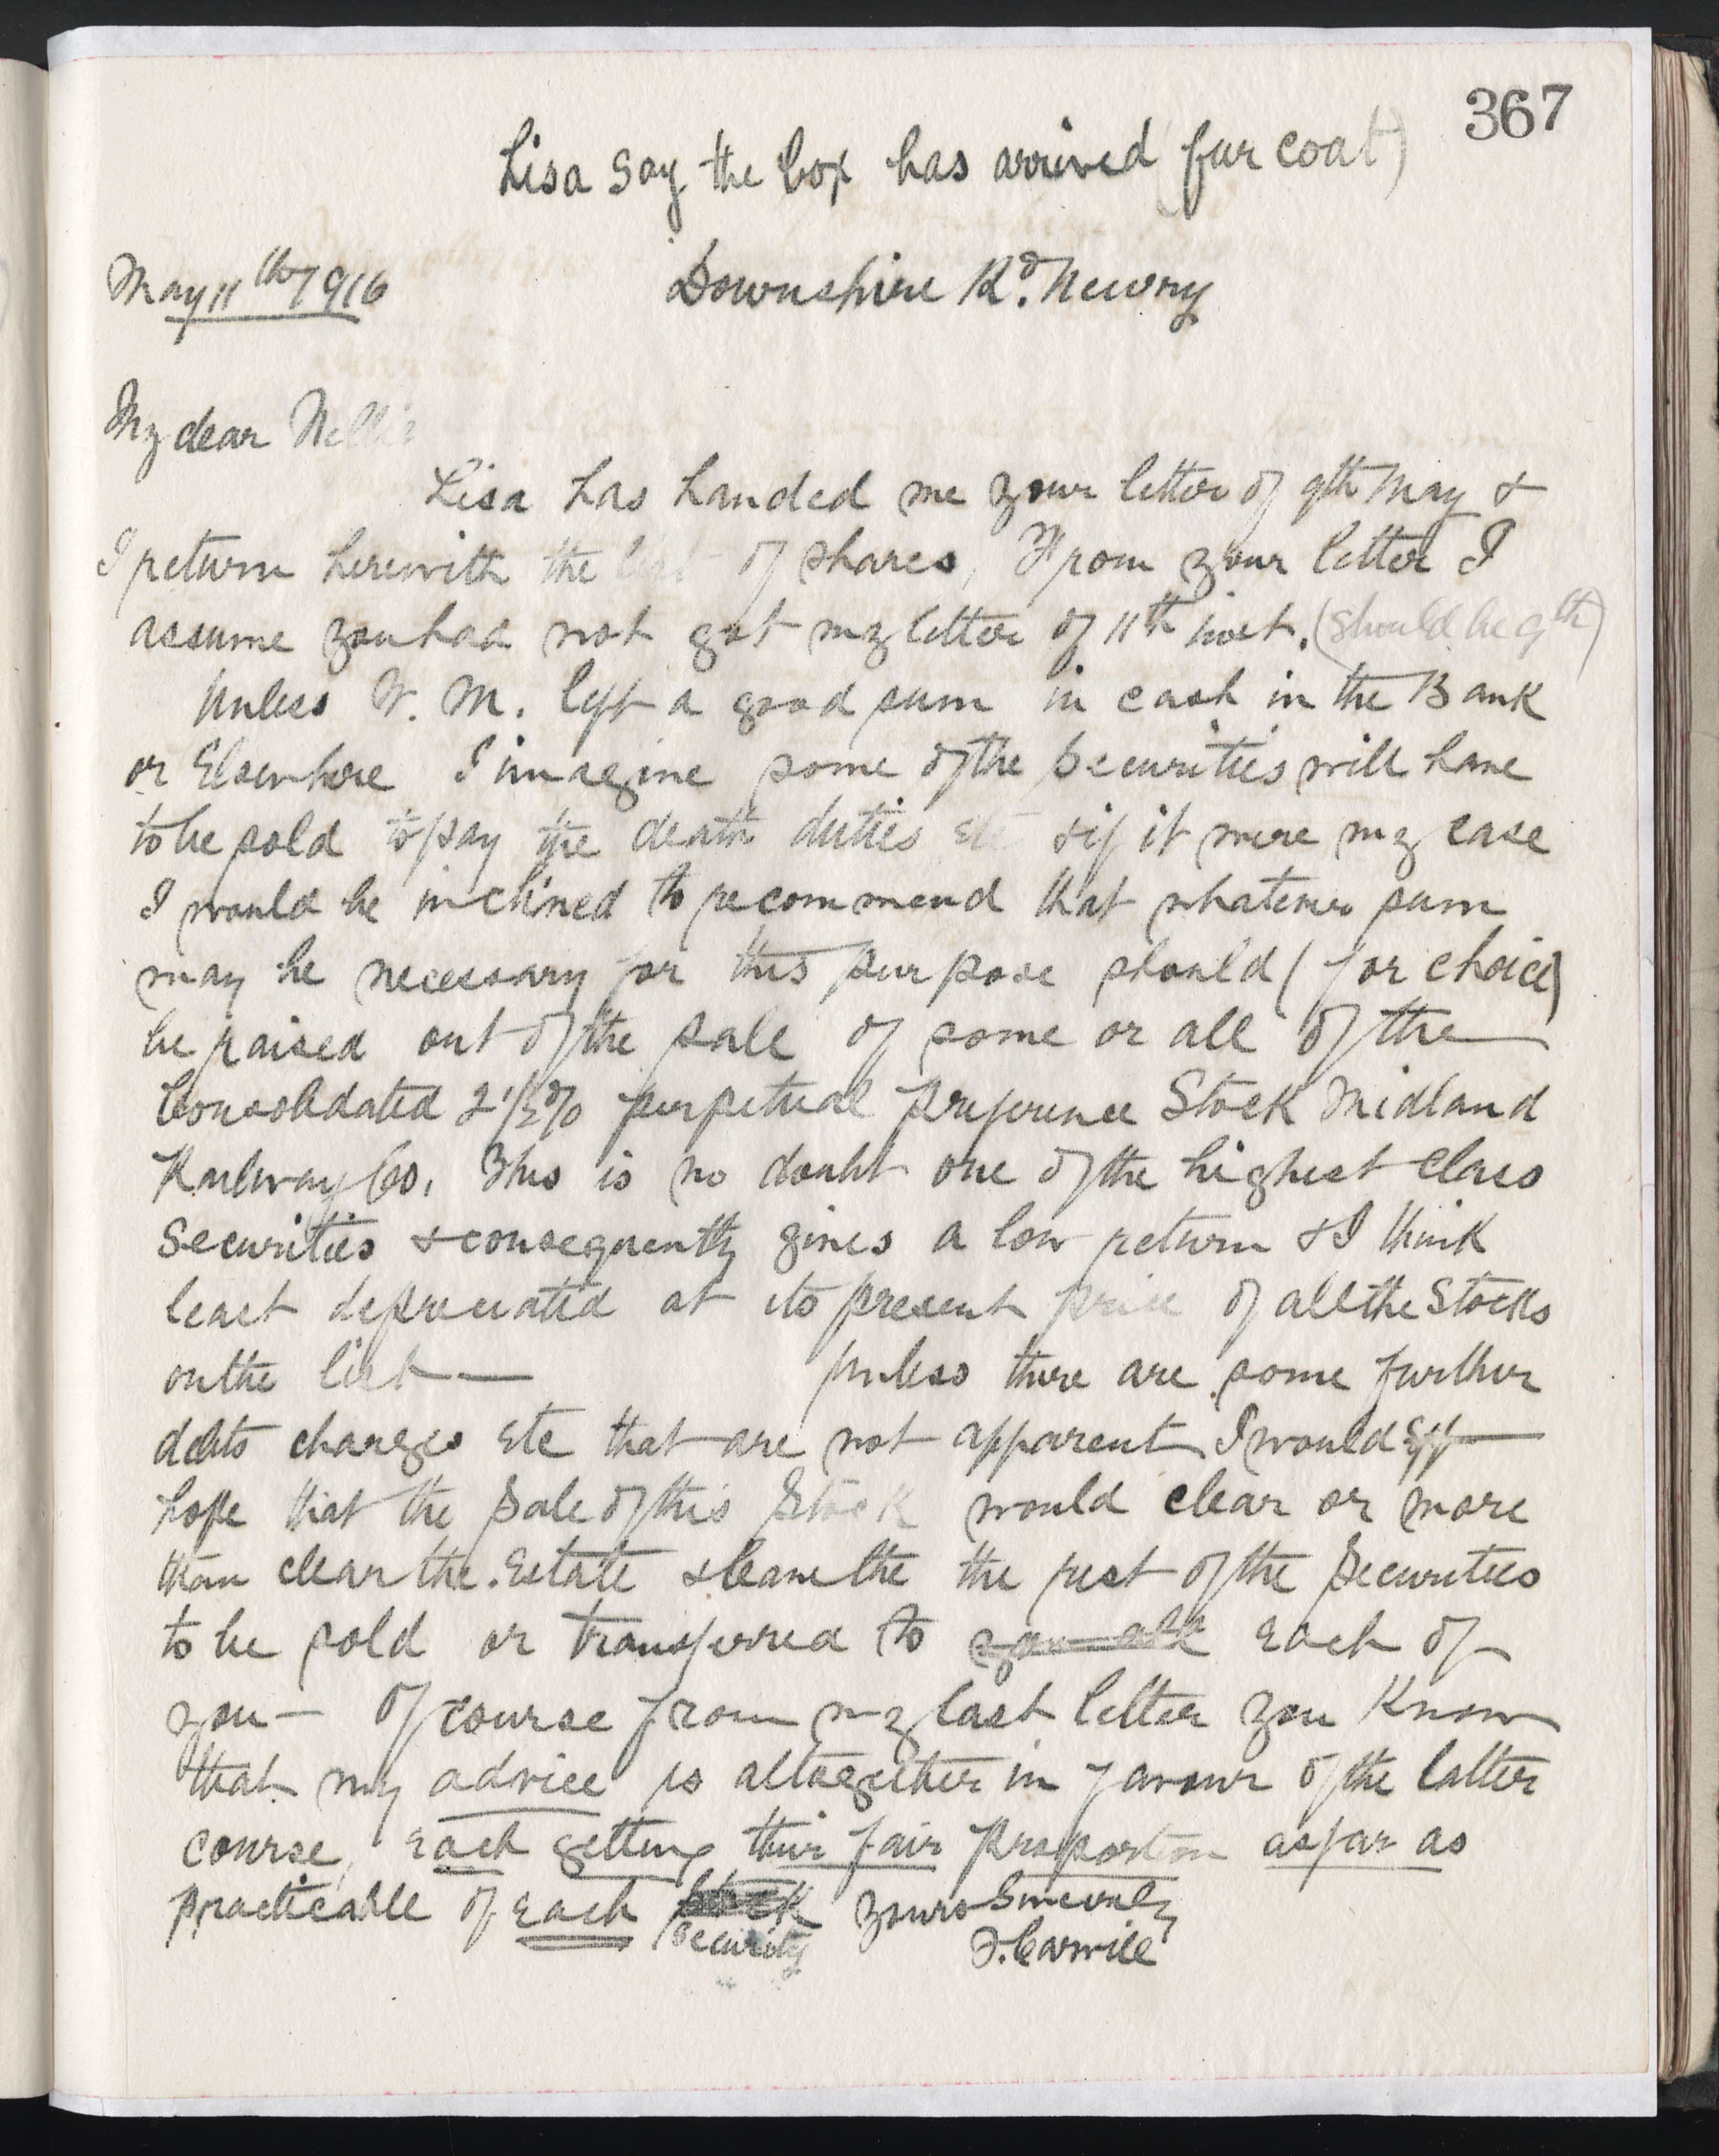 367
Lisa say the box has arrived (fur coat)
May 11th 1916
Downshire Rd. Newry
My dear Nellie
Lisa has handed me your letter of 9th May &
I return herewith the list of shares, From your letter I
assume you had not got my letter of 11th inst. (should be 9th)
Unless W. M. left a good sum in cash in the Bank
or Elsewhere I imagine some of the Securities will have
to be sold to pay the death duties etc & if it were my case
I would be inclined to recommend that whatever sum
may be necessary for this purpose should (for choice)
be raised out of the sale of some or all of the
Consolidated 2 1/2% perpetual preference Stock Midland
Railway Co. This is no doubt one of the highest class
Securities & consequently gives a low return & I think
least depreciated at its present price of all the Stocks
on the list — Unless there are some further
debts charges etc that are not apparent I would
hope that the sale of this Stock would clear or more
than clear the Estate & leave the the rest of the Securities
to be sold or transferred to you all Each of
you — Of course from my last letter you Know
that my advice is altogether in favour of the latter
course, Each getting their fair proportion as far as
practicable of Each Stock Yours Sincerely
Security F. Carvill